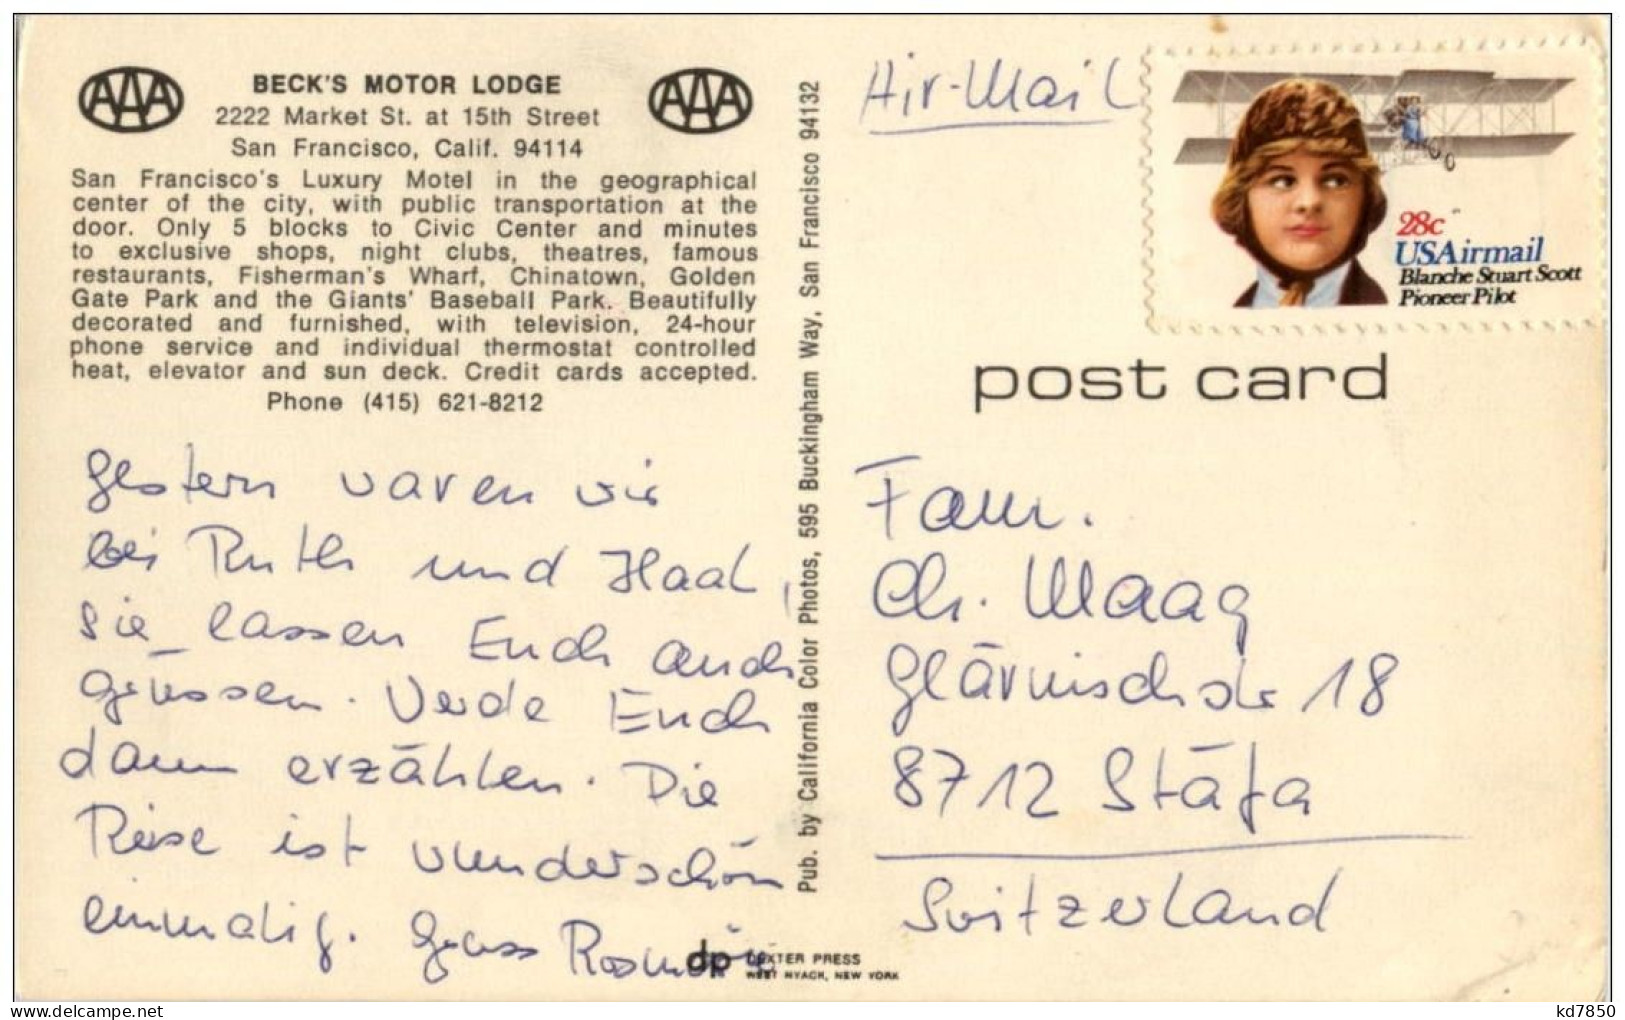 AAA
BECK'S MOTOR LODGE
AAA
2222 Market St. at 15th Street
San Francisco, Calif. 94114
San Francisco's Luxury Motel in the geographical
center of the city, with public transportation at the
door. Only 5 blocks to Civic Center and minutes
to exclusive shops, night clubs, theatres, famous
restaurants, Fisherman's Wharf, Chinatown, Golden
Gate Park and the Giants' Baseball Park. Beautifully
decorated and furnished, with television, 24-hour
phone service and individual thermostat controlled
heat, elevator and sun deck. Credit cards accepted.
Phone (415) 621-8212
Gestern waren wir
bei Ruth und
sie lassen Euch auch
grüssen. Werde Euch
dann erzählen. Die
Reise ist wunderschön
einmalig. Gruss
dp DEXTER PRESS
WEST NYACK, NEW YORK
Pub. by California Color Photos, 595 Buckingham Way, San Francisco 94132
Air-Mail
28c
USAirmail
Blanche Stuart Scott
Pioneer Pilot
post card
Fam.
Ch. Maag
Glärnischstr 18
8712 Stäfa
Switzerland
kd7850